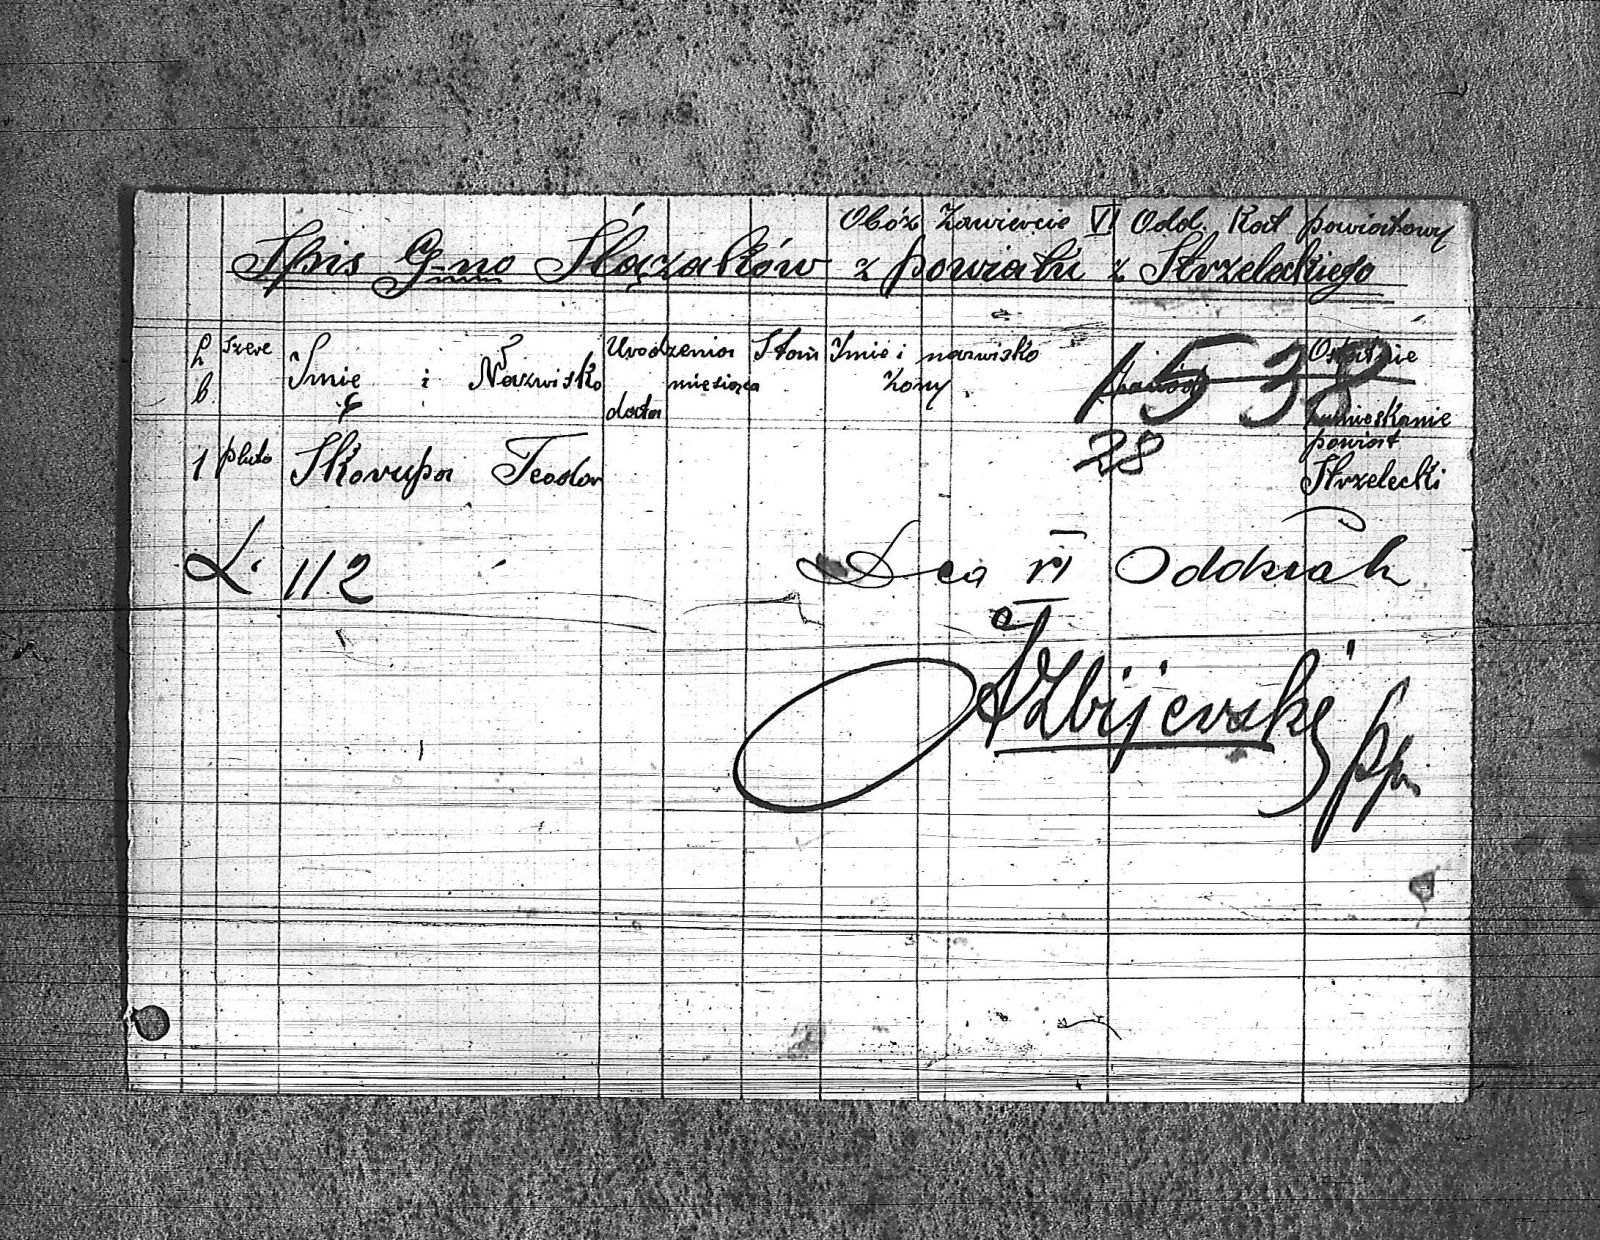 Obóz Zawiercie VI Odd. Kat powiatowy
Spis G-no Ślązaków z powiatu z Strzeleckiego
L b. Szere Imię i Nazwisko Urodzenia data miesiąca Stan Imie i nazwisko żony Zawód Ostatnie zamieskanie
1538
28
1 pluto Skorupa Teodor powiat Strzelecki
L. 112
Dca VI Oddział
Zbijewski ppr